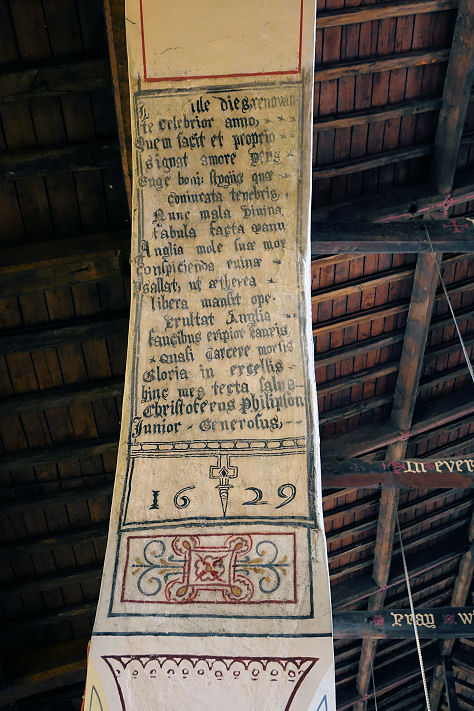 ille dies renovan
te celebrior anno,
Quem facit et proprio
signat amore Deus
Euge boni stygiis quæ
coniurata tenebris,
Nunc mala Divina
tabula facta manu
Anglia mole suæ mox
conspicienda ruinæ
Psallat, ut ætherea
libera mansit ope.
Exultat Anglia
faucibus eripior
quasi carcere mortis
Gloria in excelsis
hinc mea testa salus
Christoferus Philipson
Junior - Generosus.
1629
In ever
Pray wi